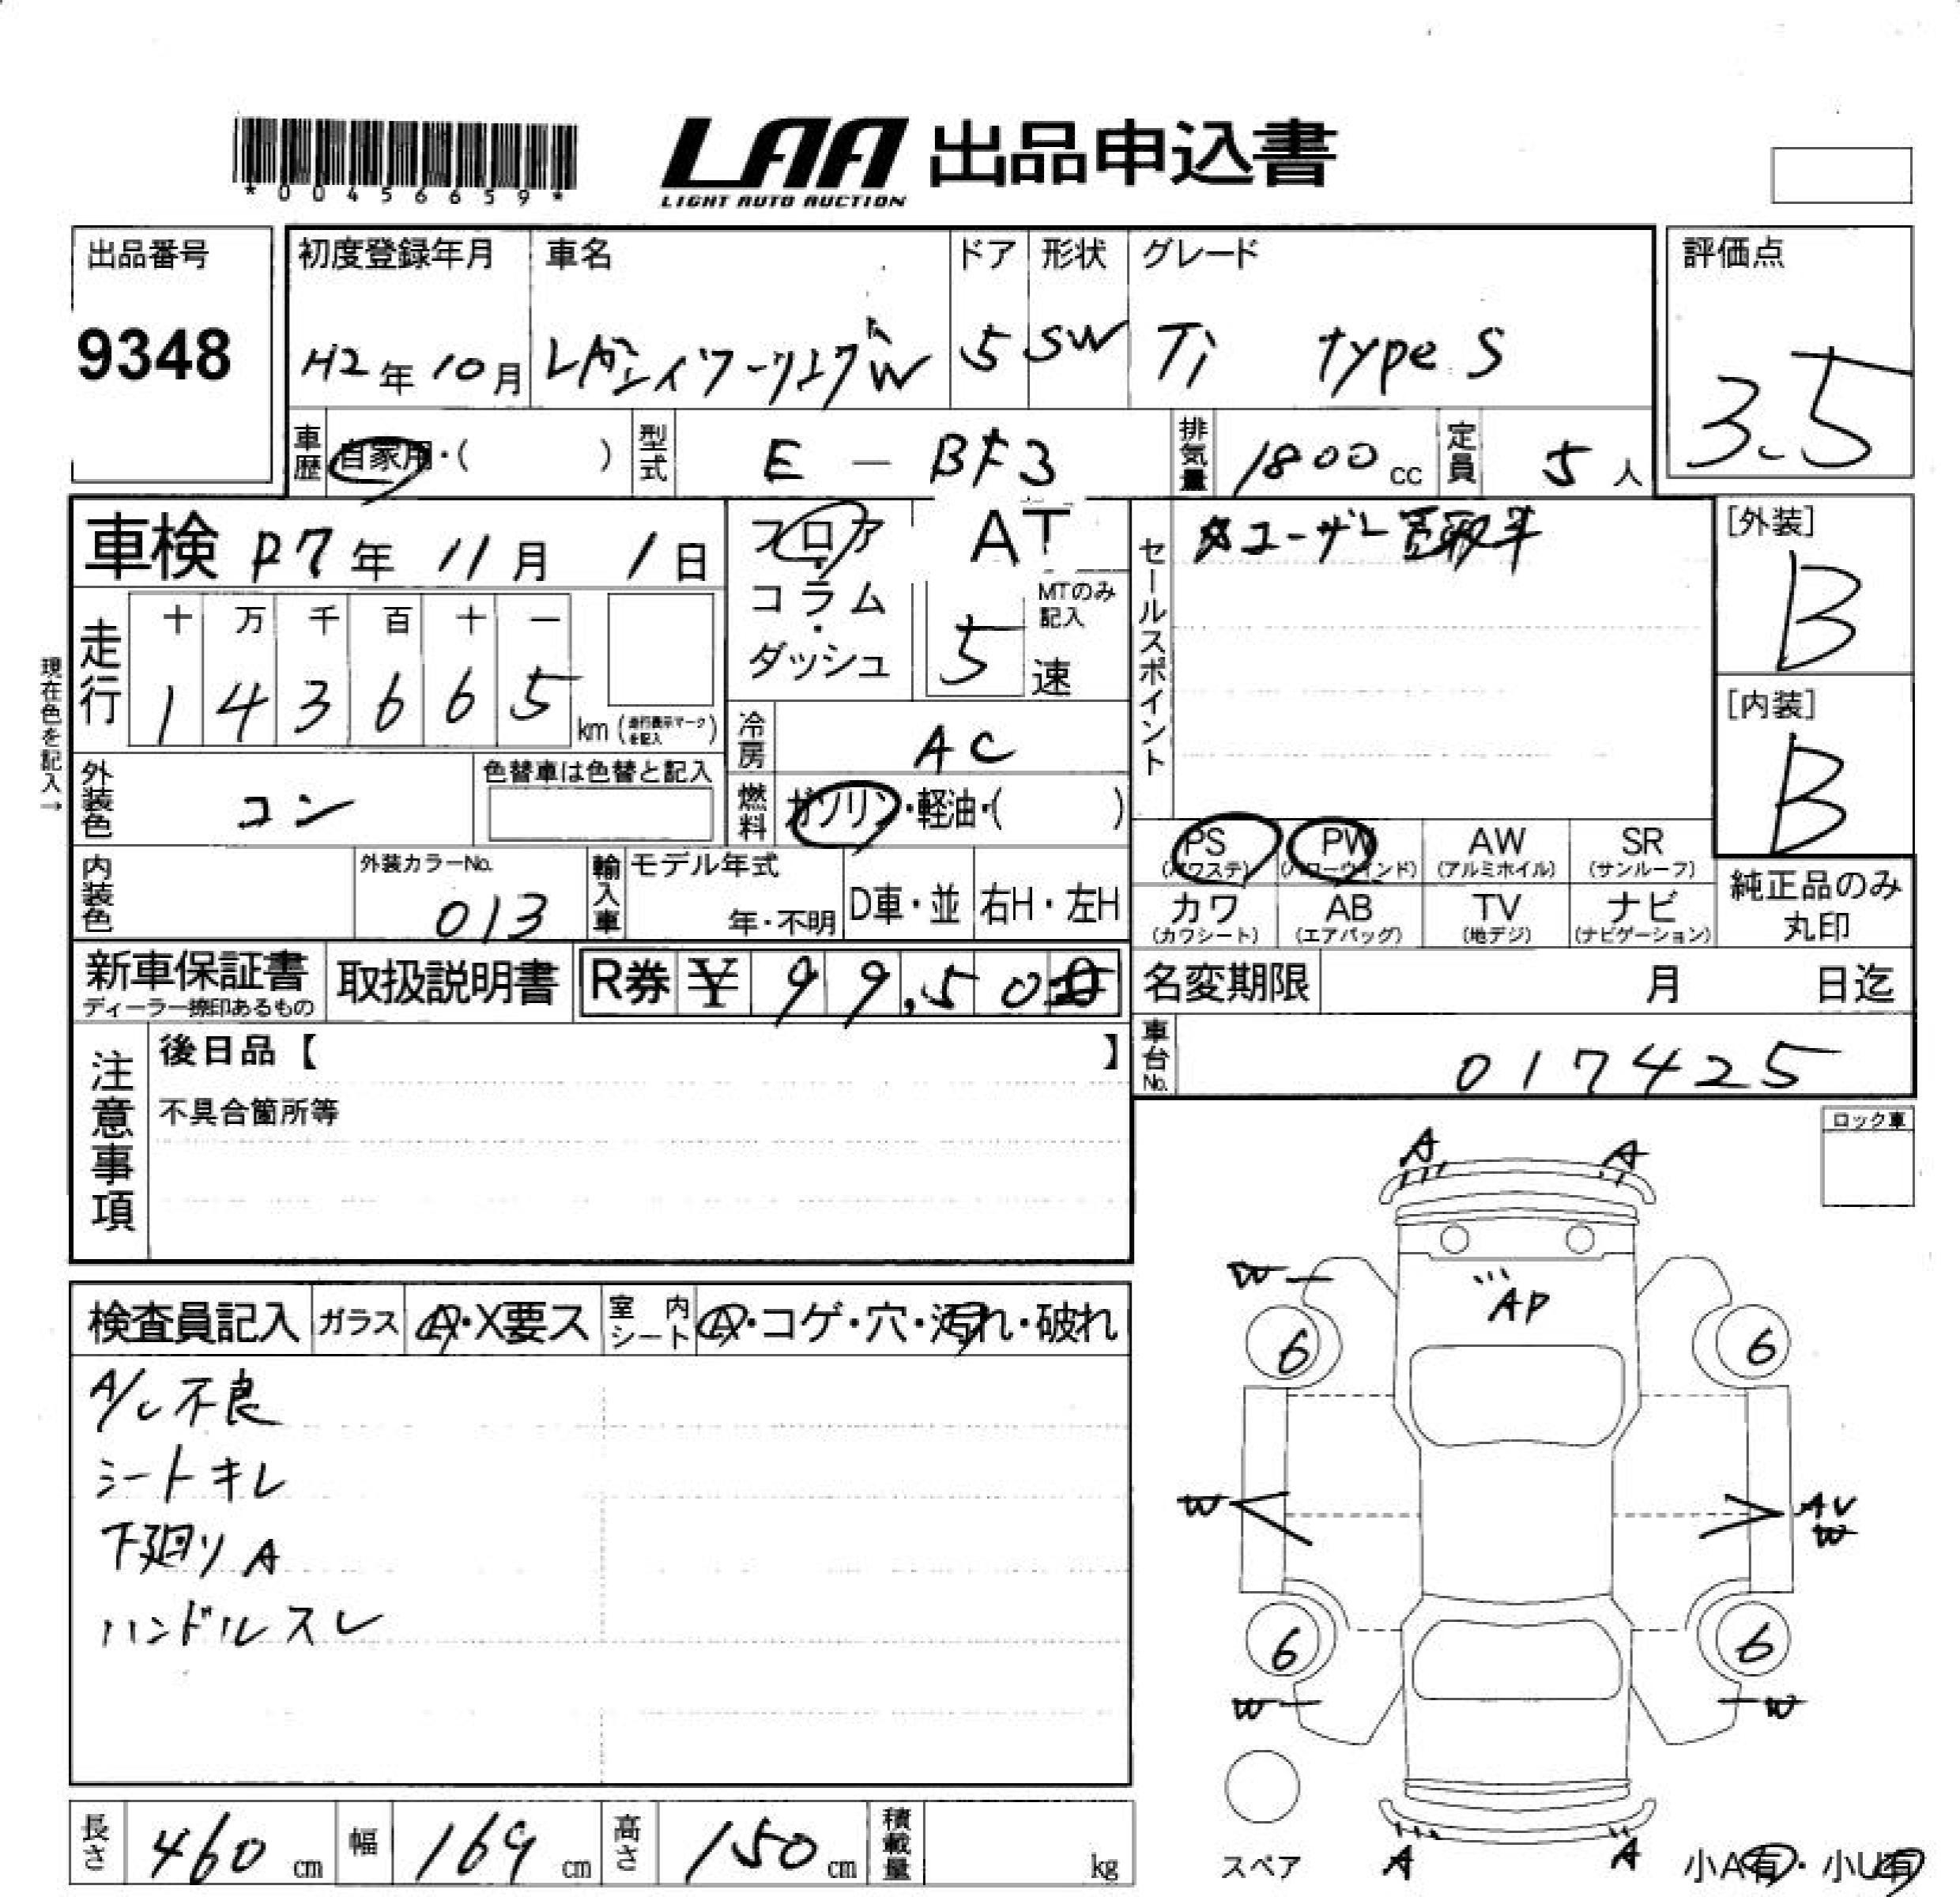 *00456659*
LAA 出品申込書
LIGHT AUTO AUCTION
出品番号
9348
初度登録年月
H2年10月
車名
ドア
5
形状
SW
グレード
Ti type S
評価点
3.5
車歴
自家用・( )
型式
E - BF3
排気量
1800 cc
定員
5人
車検 R7年11月1日
フロア・コラム・ダッシュ
AT
MTのみ記入
5速
セールスポイント
ユーザー買取車
[外装]
B
[内装]
B
現在色を記入→
走行
十 万 千 百 十 一
1 4 3 6 6 5
km (走行表示マークを記入)
冷房
AC
外装色
コン
色替車は色替と記入
燃料
ガソリン・軽油・( )
内装色
外装カラーNo.
013
輸入車
モデル年式
年・不明
D車・並
右H・左H
PS AW SR
PW
(パワステ) (パワーウィンド) (アルミホイル) (サンルーフ)
カワ AB TV ナビ
(カワシート) (エアバッグ) (地デジ) (ナビゲーション)
純正品のみ丸印
新車保証書
ディーラー捺印あるもの
取扱説明書
R券 ¥ 99,500
名変期限 月 日迄
車台No.
017425
注意事項
後日品【 】
不具合箇所等
ロック車
検査員記入
ガラス
A・X要ス
室内シート
A・コゲ・穴・汚れ・破れ
A/C不良
シートキレ
下廻りA
ハンドルスレ
A A
W
AP
6 6
W AV
W
6 6
W W
スペア
A A
小A有・小U有
長さ 460 cm
幅 169 cm
高さ 150 cm
積載量 kg